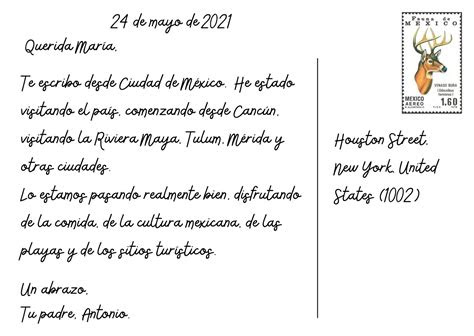 24 de mayo de 2021
Querida María,
Te escribo desde Ciudad de México. He estado
visitando el país, comenzando desde Cancún,
visitando la Riviera Maya, Tulum, Mérida y
otras ciudades.
Lo estamos pasando realmente bien, disfrutando
de la comida, de la cultura mexicana, de las
playas y de los sitios turísticos.
Un abrazo,
Tu padre, Antonio.
Fauna de
MEXICO
VENADO BURA
MEXICO
AEREO
1.60
Houston Street,
New York, United
States (1002)